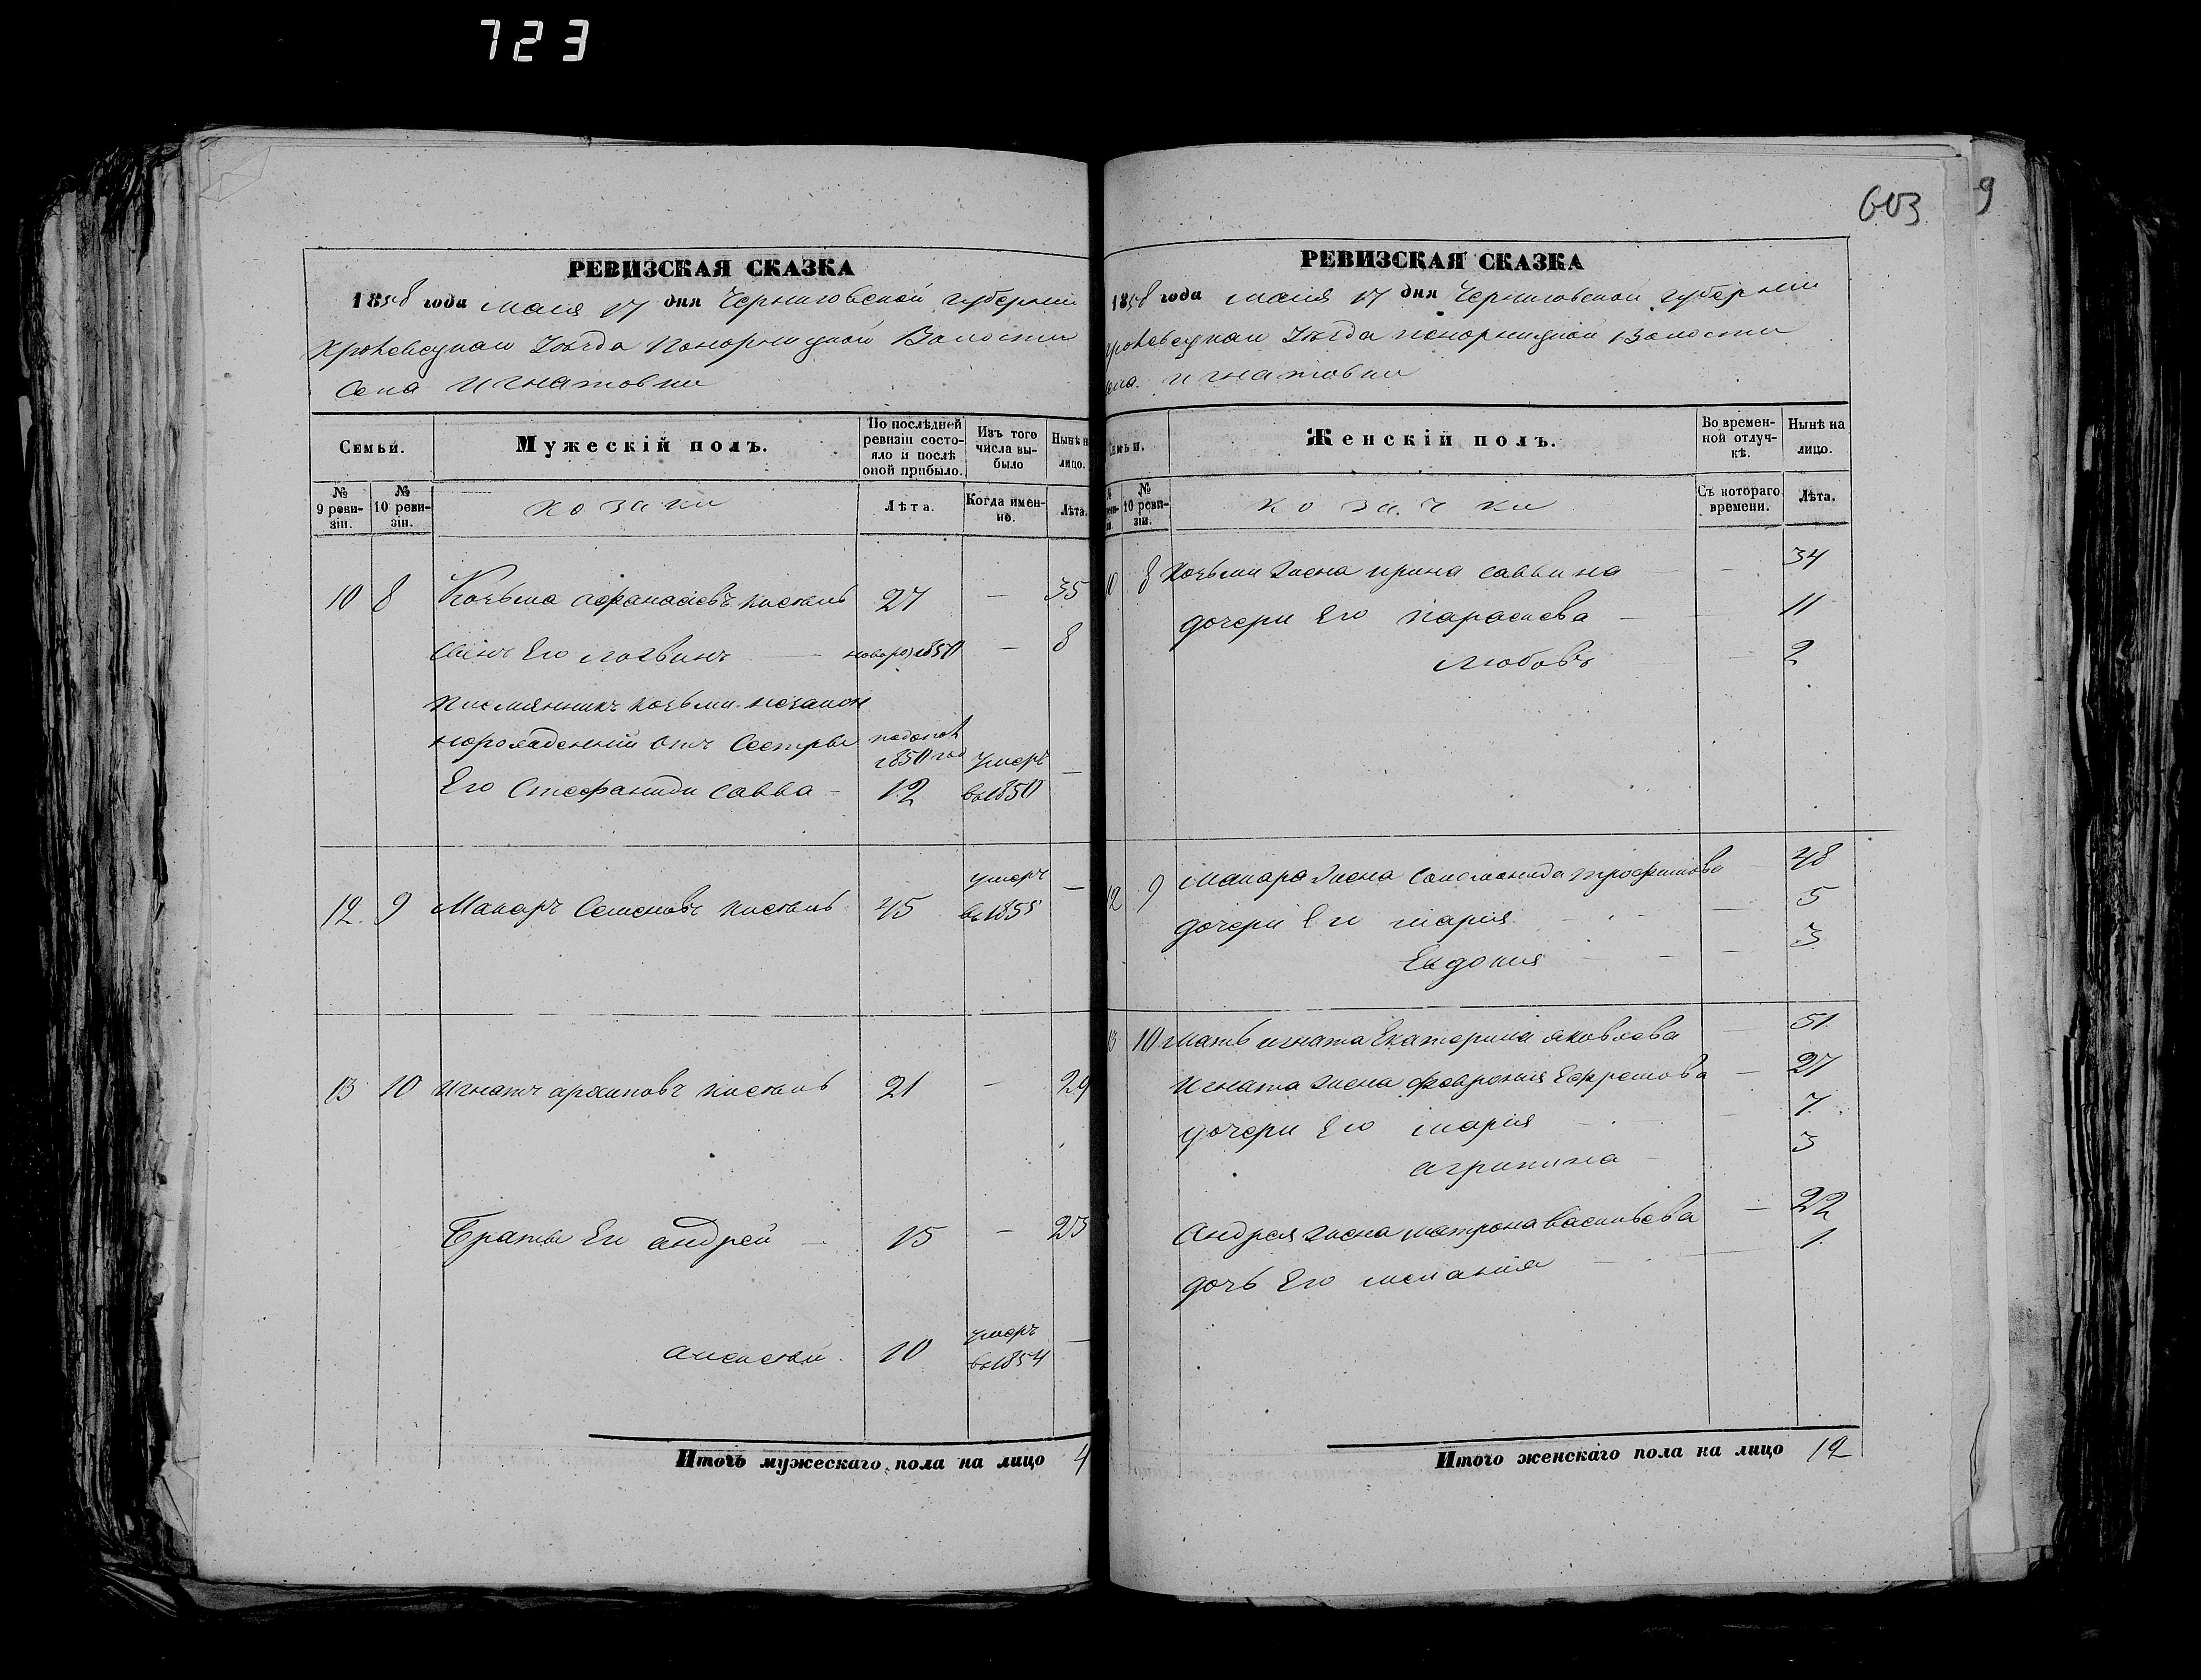 723
603
9
РЕВИЗСКАЯ СКАЗКА
1858 года мая 17 дня Черниговской губернии
Кролевецкаи Уѣзда Понорницкой Волости
Села Игнатовки
Семьи.
Мужескій полъ.
По послѣдней ревизіи состояло и послѣ оной прибыло.
Изъ того числа выбыло
Нынѣ на лицо.
№ 9 ревизіи.
№ 10 ревизіи.
козаки
Лѣта.
Когда именно.
Лѣта.
10 8 Козьма Афанасіевъ Кистень 27 — 35
Сынъ Его Логвинъ — новорож 1850 — 8
Племянникъ Козьми незакон
норожденній отъ Сестры
1850 год умеръ —
Его Стефаниди Савва - 12 въ 1850
умеръ —
12. 9 Макаръ Семеновъ Кистень 45 въ 1855
13 10 Игнатъ Архиповъ Кистень 21 — 29
Братья Ег Андрей — 15 — 23
умеръ —
Алексей 10 въ 1854
Итогъ мужескаго пола на лицо 4
РЕВИЗСКАЯ СКАЗКА
1858 года мая 17 дня Черниговской губернии
кролевецкаи Уѣзда понорницкой Волости
села Игнатовки
Семьи.
Женскій полъ.
Во временной отлучкѣ.
Нынѣ на лицо.
№ 10 ревизіи.
козачки
Съ котораго времени.
Лѣта.
10 8 Козьми жена Ирина Саввина — 34
дочери Его Параскева — 11
Любовь — 2
12 9 Макара жена Соломонида Трофимова — 48
дочери Его Мария — 5
Евдокия — 3
13 10 Мать Игната Екатерина Яковлева — 51
Игната жена Феврония Ефремова — 27
дочери Его Мария — 7
Агрипина — 3
Андрея жена Матрона Васильева — 22
дочь Его Мелания — 1
Итого женскаго пола на лицо 12